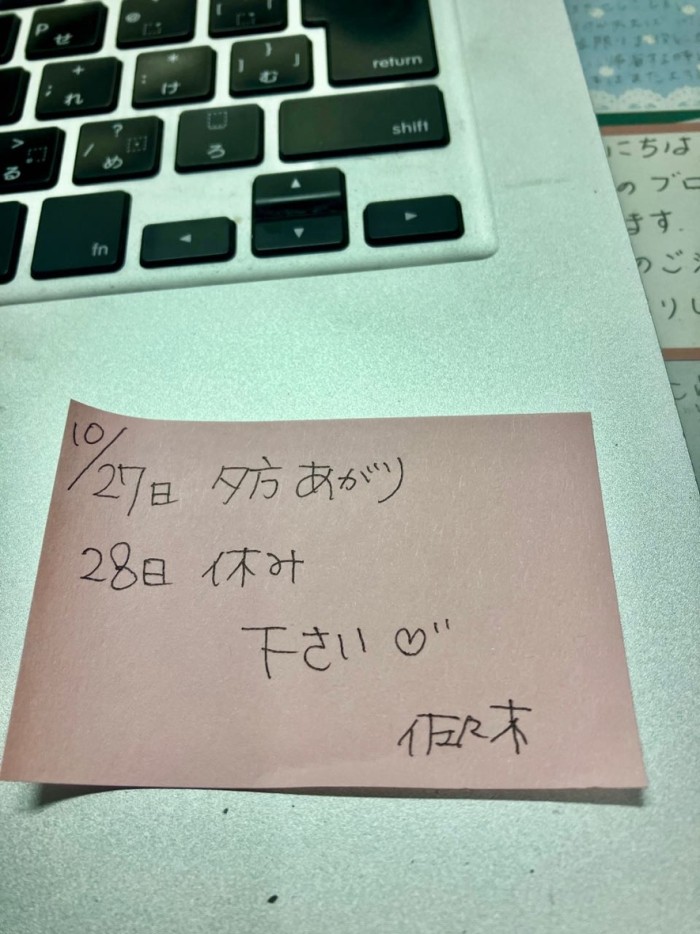 P せ
@
+ ; れ
* : け
} ] む
return
> る
? / め
ろ
shift
fn
◀
▲
▼
▶
にちは
のブロ
ます.
のご
りし
10/27日 夕方 あがり
28日 休み
下さい ♡"
佐々木